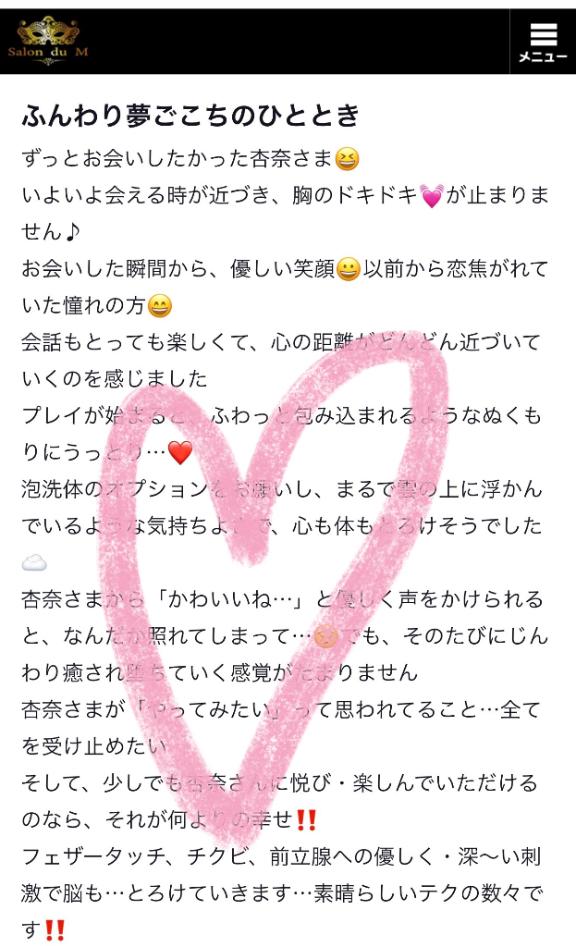 Salon du M
メニュー
ふんわり夢ごこちのひととき
ずっとお会いしたかった杏奈さま😆
いよいよ会える時が近づき、胸のドキドキ💓が止まりま
せん♪
お会いした瞬間から、優しい笑顔😀以前から恋焦がれて
いた憧れの方😄
会話もとっても楽しくて、心の距離がどんどん近づいて
いくのを感じました
プレイが始まると、ふわっと包み込まれるようなぬくも
りにうっとり…❤️
泡洗体のオプションをお願いし、まるで雲の上に浮かん
でいるような気持ちよさで、心も体もとろけそうでした
☁️
杏奈さまから「かわいいね…」と優しく声をかけられる
と、なんだか照れてしまって…😣でも、そのたびにじん
わり癒され堕ちていく感覚がたまりません
杏奈さまが「やってみたい」って思われてること…全て
を受け止めたい
そして、少しでも杏奈さんに悦び・楽しんでいただける
のなら、それが何よりの幸せ‼️
フェザータッチ、チクビ、前立腺への優しく・深〜い刺
激で脳も…とろけていきます…素晴らしいテクの数々で
す‼️